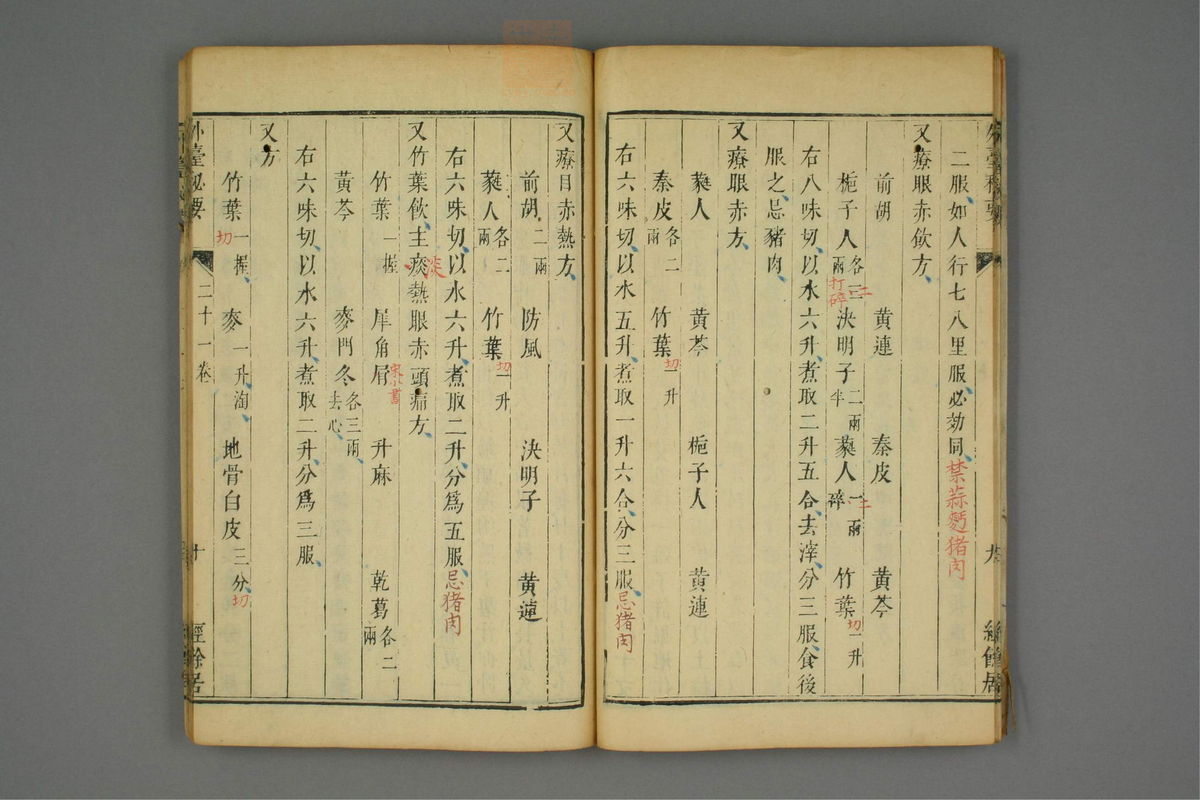 二服如人行七八里服必効同禁蒜麪猪肉
又療眼赤飲方
前胡 黄連 秦皮 黄芩
梔子人各三兩 二 打碎 決明子二兩半 蕤人一兩碎 二 竹葉切一升
右八味切以水六升煮取二升五合去滓分三服食後
服之忌豬肉
又療眼赤方
蕤人 黄芩 梔子人 黄連
秦皮各二兩 竹葉切一升
右六味切以水五升煮取一升六合分三服忌猪肉
又療目赤熱方
前胡二兩 防風 決明子 黄連
蕤人各二兩 竹葉切一升
右六味切以水六升煮取二升分爲五服忌猪肉
又竹葉飲主痰熱眼赤頭痛方 淡
竹葉一握 犀角屑 升麻 乾葛各二兩
黄芩 麥門冬各三兩去心
右六味切以水六升煮取二升分爲三服
又方
竹葉一握切 麥一升淘 地骨白皮三分切
外臺秘要 二十一卷 十 經餘居